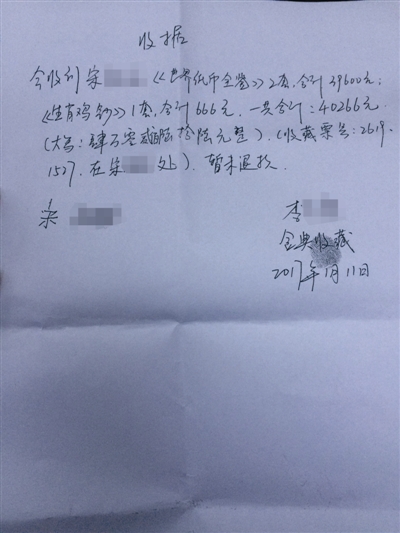 收据
今收到宋 《世界纸币全鉴》2套,合计39600元;
《生肖鸡钞》1套,合计666元,一共合计:40266元.
(大写:肆万零贰佰陆拾陆元整).(收藏票号:2619
1527.在朱 处).暂未退款.
李
金典收藏
2017年1月11日